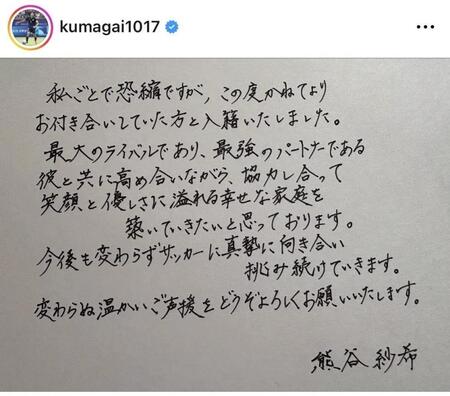 kumagai1017
私ごとで恐縮ですが、この度かねてより
お付き合いしていた方と入籍いたしました。
最大のライバルであり、最強のパートナーである
彼と共に高め合いながら、協力し合って
笑顔と優しさに溢れる幸せな家庭を
築いていきたいと思っております。
今後も変わらずサッカーに真摯に向き合い
挑み続けていきます。
変わらぬ温かいご声援をどうぞよろしくお願いいたします。
熊谷紗希